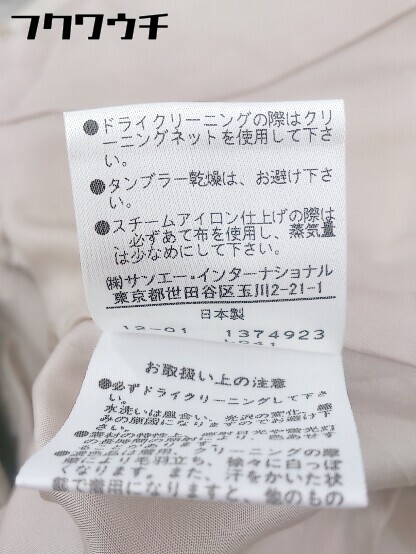 フクワウチ
●ドライクリーニングの際はクリ
ーニングネットを使用して下さ
い。
●タンブラー乾燥は、お避け下さ
い。
●スチームアイロン仕上げの際は
必ずあて布を使用し、蒸気量
は少なめにして下さい。
㈱サンエー・インターナショナル
東京都世田谷区玉川2-21-1
日本製
12-01 1374923
お取扱い上の注意
●必ずドライクリーニングして下さ
い。
水洗いは風合い、光沢の変化、縮
みの原因になりますのでお避け下
さい。
クリーニングの摩
により毛羽立ち、徐々に白っぽ
くなります。また、汗をかいた状
態で着用になりますと、他のもの